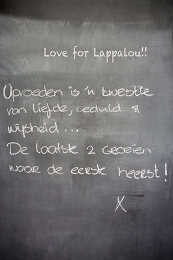 Love for Lappalou!!
Opvoeden is 'n kwestie
van liefde, geduld &
wijsheid...
De laatste 2 groeien
waar de eerste heerst!
X